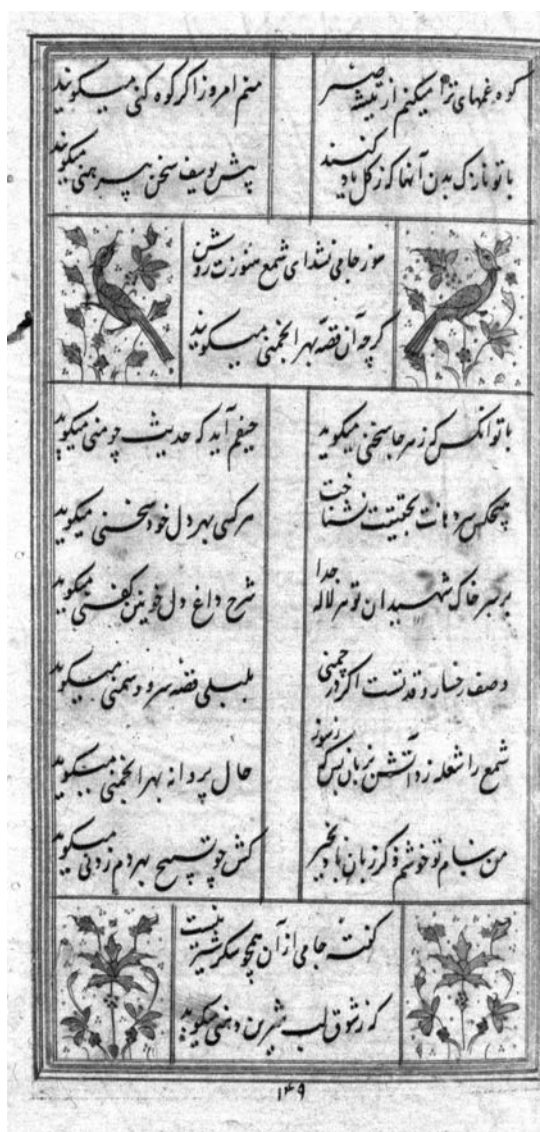 کوه غمهای ترا میکنم از تیشه صبر منم امروز اگر کوه کنی میگویند
با تو نازک بدن آنها که ز گل یاد کنند پیش یوسف سخن پیرهنی میگویند
سوز جامی نشد ای شمع هنوزت روشن
گرچه آن قصه بهر انجمنی میگویند
با تو آنکس که ز هر جا سخنی میگوید حیفم آید که حدیث چو منی میگوید
هیچکس سر دهانت بحقیقت نشناخت هر کسی بهر دل خود سخنی میگوید
بر سر خاک شهیدان تو هر لاله جدا شرح داغ دل خونین کفنی میگوید
وصف رخسار و قد تست اگر در چمنی بلبلی قصه سرو و سمنی میگوید
شمع را شعله زد آتش بزبان بس که ز سوز حال پروانه بهر انجمنی میگوید
من بنام تو خوشم ذکر زبان باد بخیر کش چو تسبیح بهر دم زدنی میگوید
گفته جامی از آن همچو شکر شیرینست
که ز شوق لب شیرین دهنی میگوید
۱۴۹